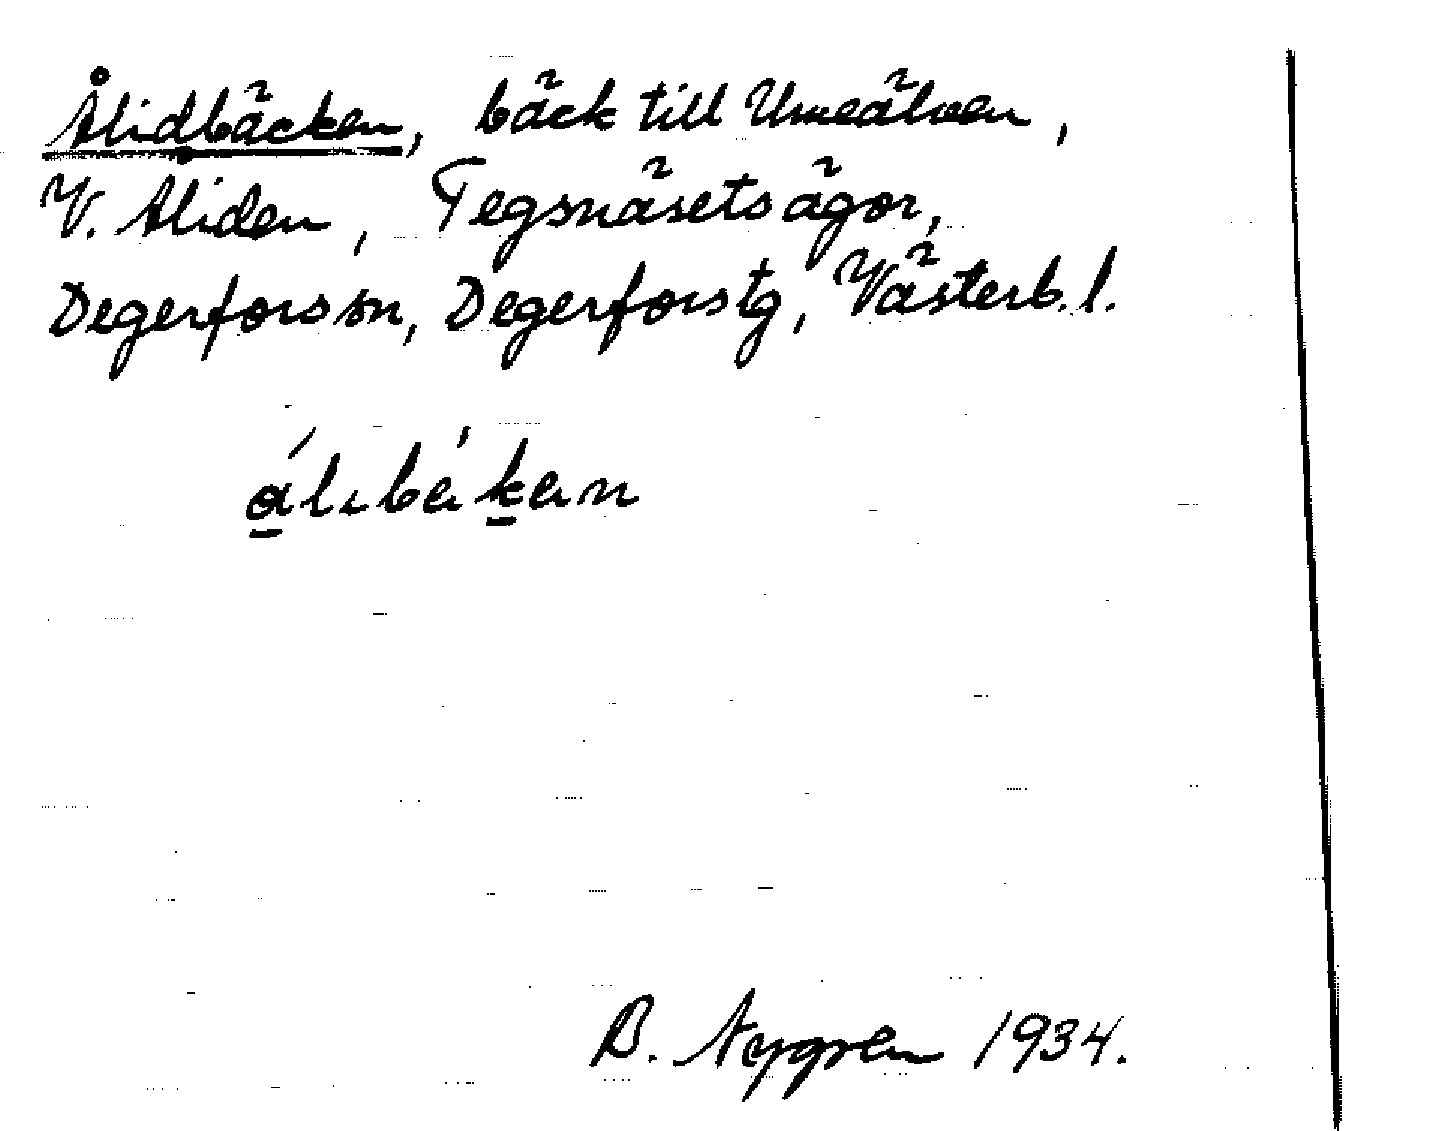 Ålidbäcken, bäck till Umeälven,
V. Åliden, Tegsnäsets ägor,
Degerfors sn, Degerfors tg, Västerb. l.
B. Nygren 1934.